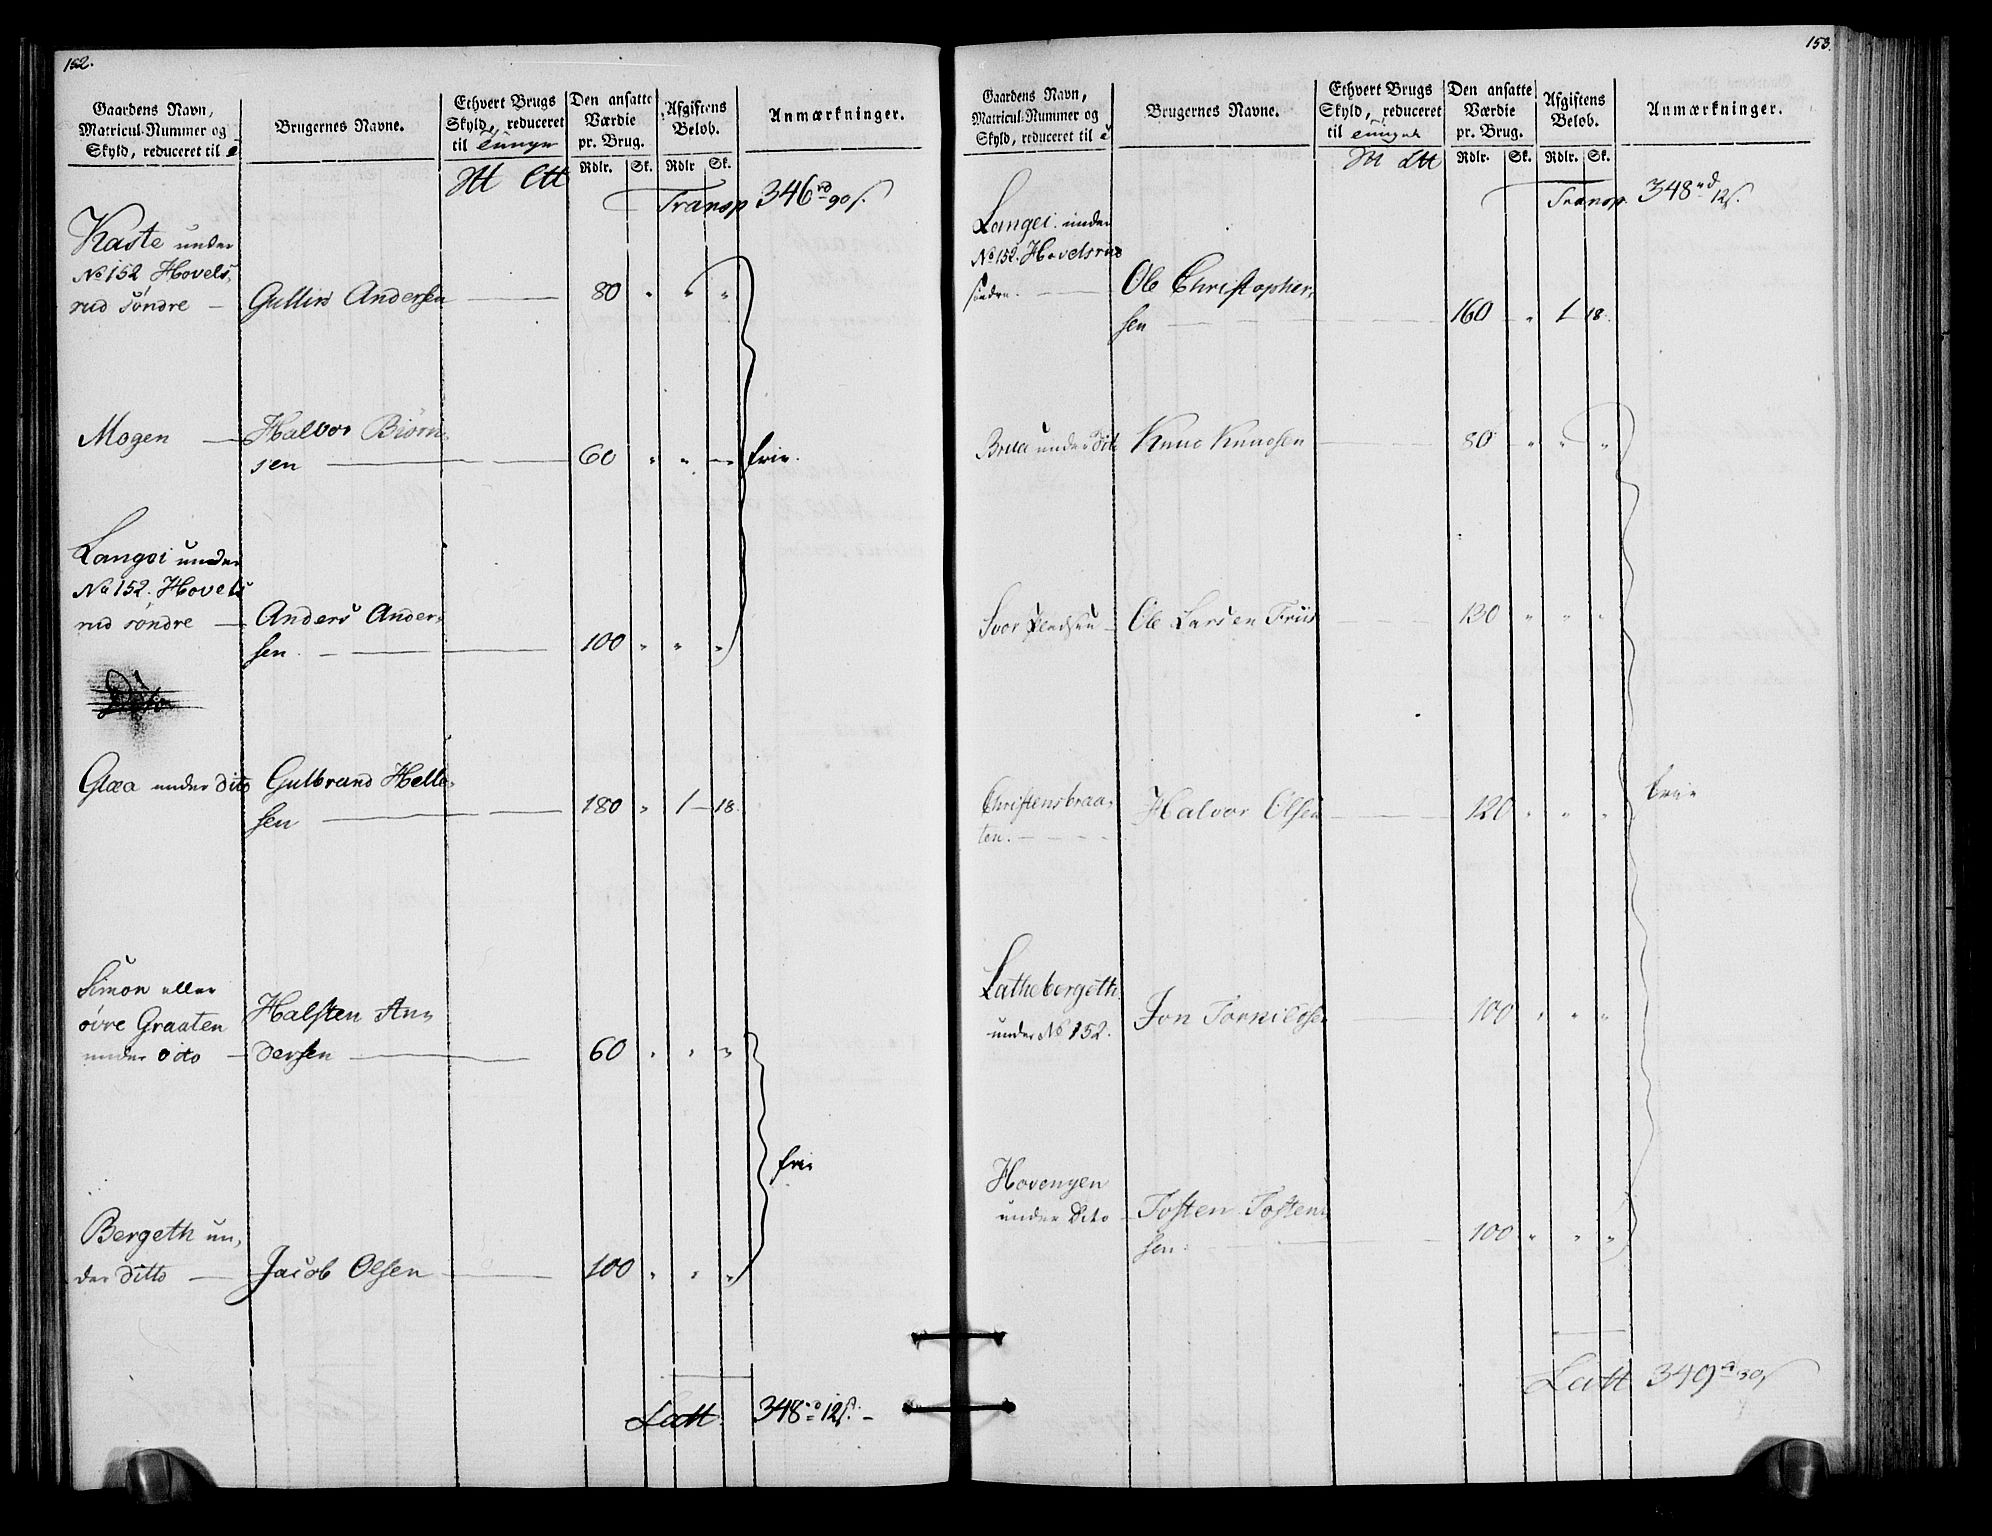 152.
Gaardens Navn, Matricul-Nummer og Skyld, reduceret til
Brugernes Navne.
Ethvert Brugs Skyld, reduceret til Tunge
Den ansatte Værdie pr. Brug.
Afgiftens Beløb.
Anmærkninger.
Rdlr. Sk. Rdlr Sk.
Transp 346 rd 90 s.
Kaste under
No 152 Hovels,
rud söndre — Gullix Andersen — 80 " " "
Mogen — Halvor Biörn,
sen — 60 " " — frie.
Langöi under
No 152. Hovels
rud söndre — Anders Ander,
sen. — 100 " " "
Dito
Glæa under dito Gulbrand Helle,
sen — 180 " 1 — 18.
Simon eller
övre Graaten Halsten An,
under dito — dersen — 60 " " "
frie
Bergeth un,
der ditto — Jacob Olsen — 100 " " "
Latt. 348 rd 12 s. —
153.
Gaardens Navn, Matricul-Nummer og Skyld, reduceret til
Brugernes Navne.
Ethvert Brugs Skyld, reduceret til Tunge
Den ansatte Værdie pr. Brug.
Afgiftens Beløb.
Anmærkninger.
Rdlr. Sk. Rdlr. Sk.
Transp. 348 rd 12 s.
Langöi under
No 152. Hovelsrud
söndre. — Ole Christopher,
sen — 160 " 1 18.
Brua under Dito Knud Knudsen — 80 " " "
Ole Larsen Friis — 130 " " "
Christensbraa,
ten. — Halvor Olsen — 120 " " "
frie
Lathebergeth
under No 152. Jon Torkildsen — 100 " " "
Hovengen
under Dito — Tosten Tosten,
sen. — 100 " " "
Latt 349 rd 30 s